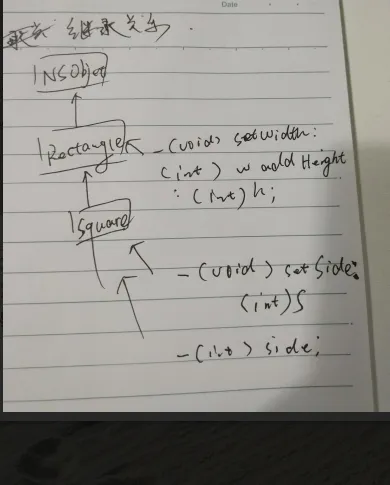 Date
继承关系.
NSObject
Rectangle
-(void) setWidth:
(int) w andHeight
: (int) h;
Square
-(void) setSide:
(int) S
-(int) side;